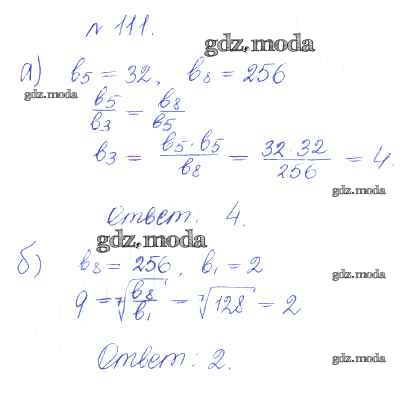 № 111.
gdz.moda
а) b5 = 32, b8 = 256
gdz.moda
b5/b3 = b8/b5
b3 = b5·b5/b8 = 32·32/256 = 4.
gdz.moda
Ответ. 4.
gdz.moda
б) b8 = 256, b1 = 2
gdz.moda
q = ⁷√(b8/b1) = ⁷√128 = 2
Ответ: 2.
gdz.moda